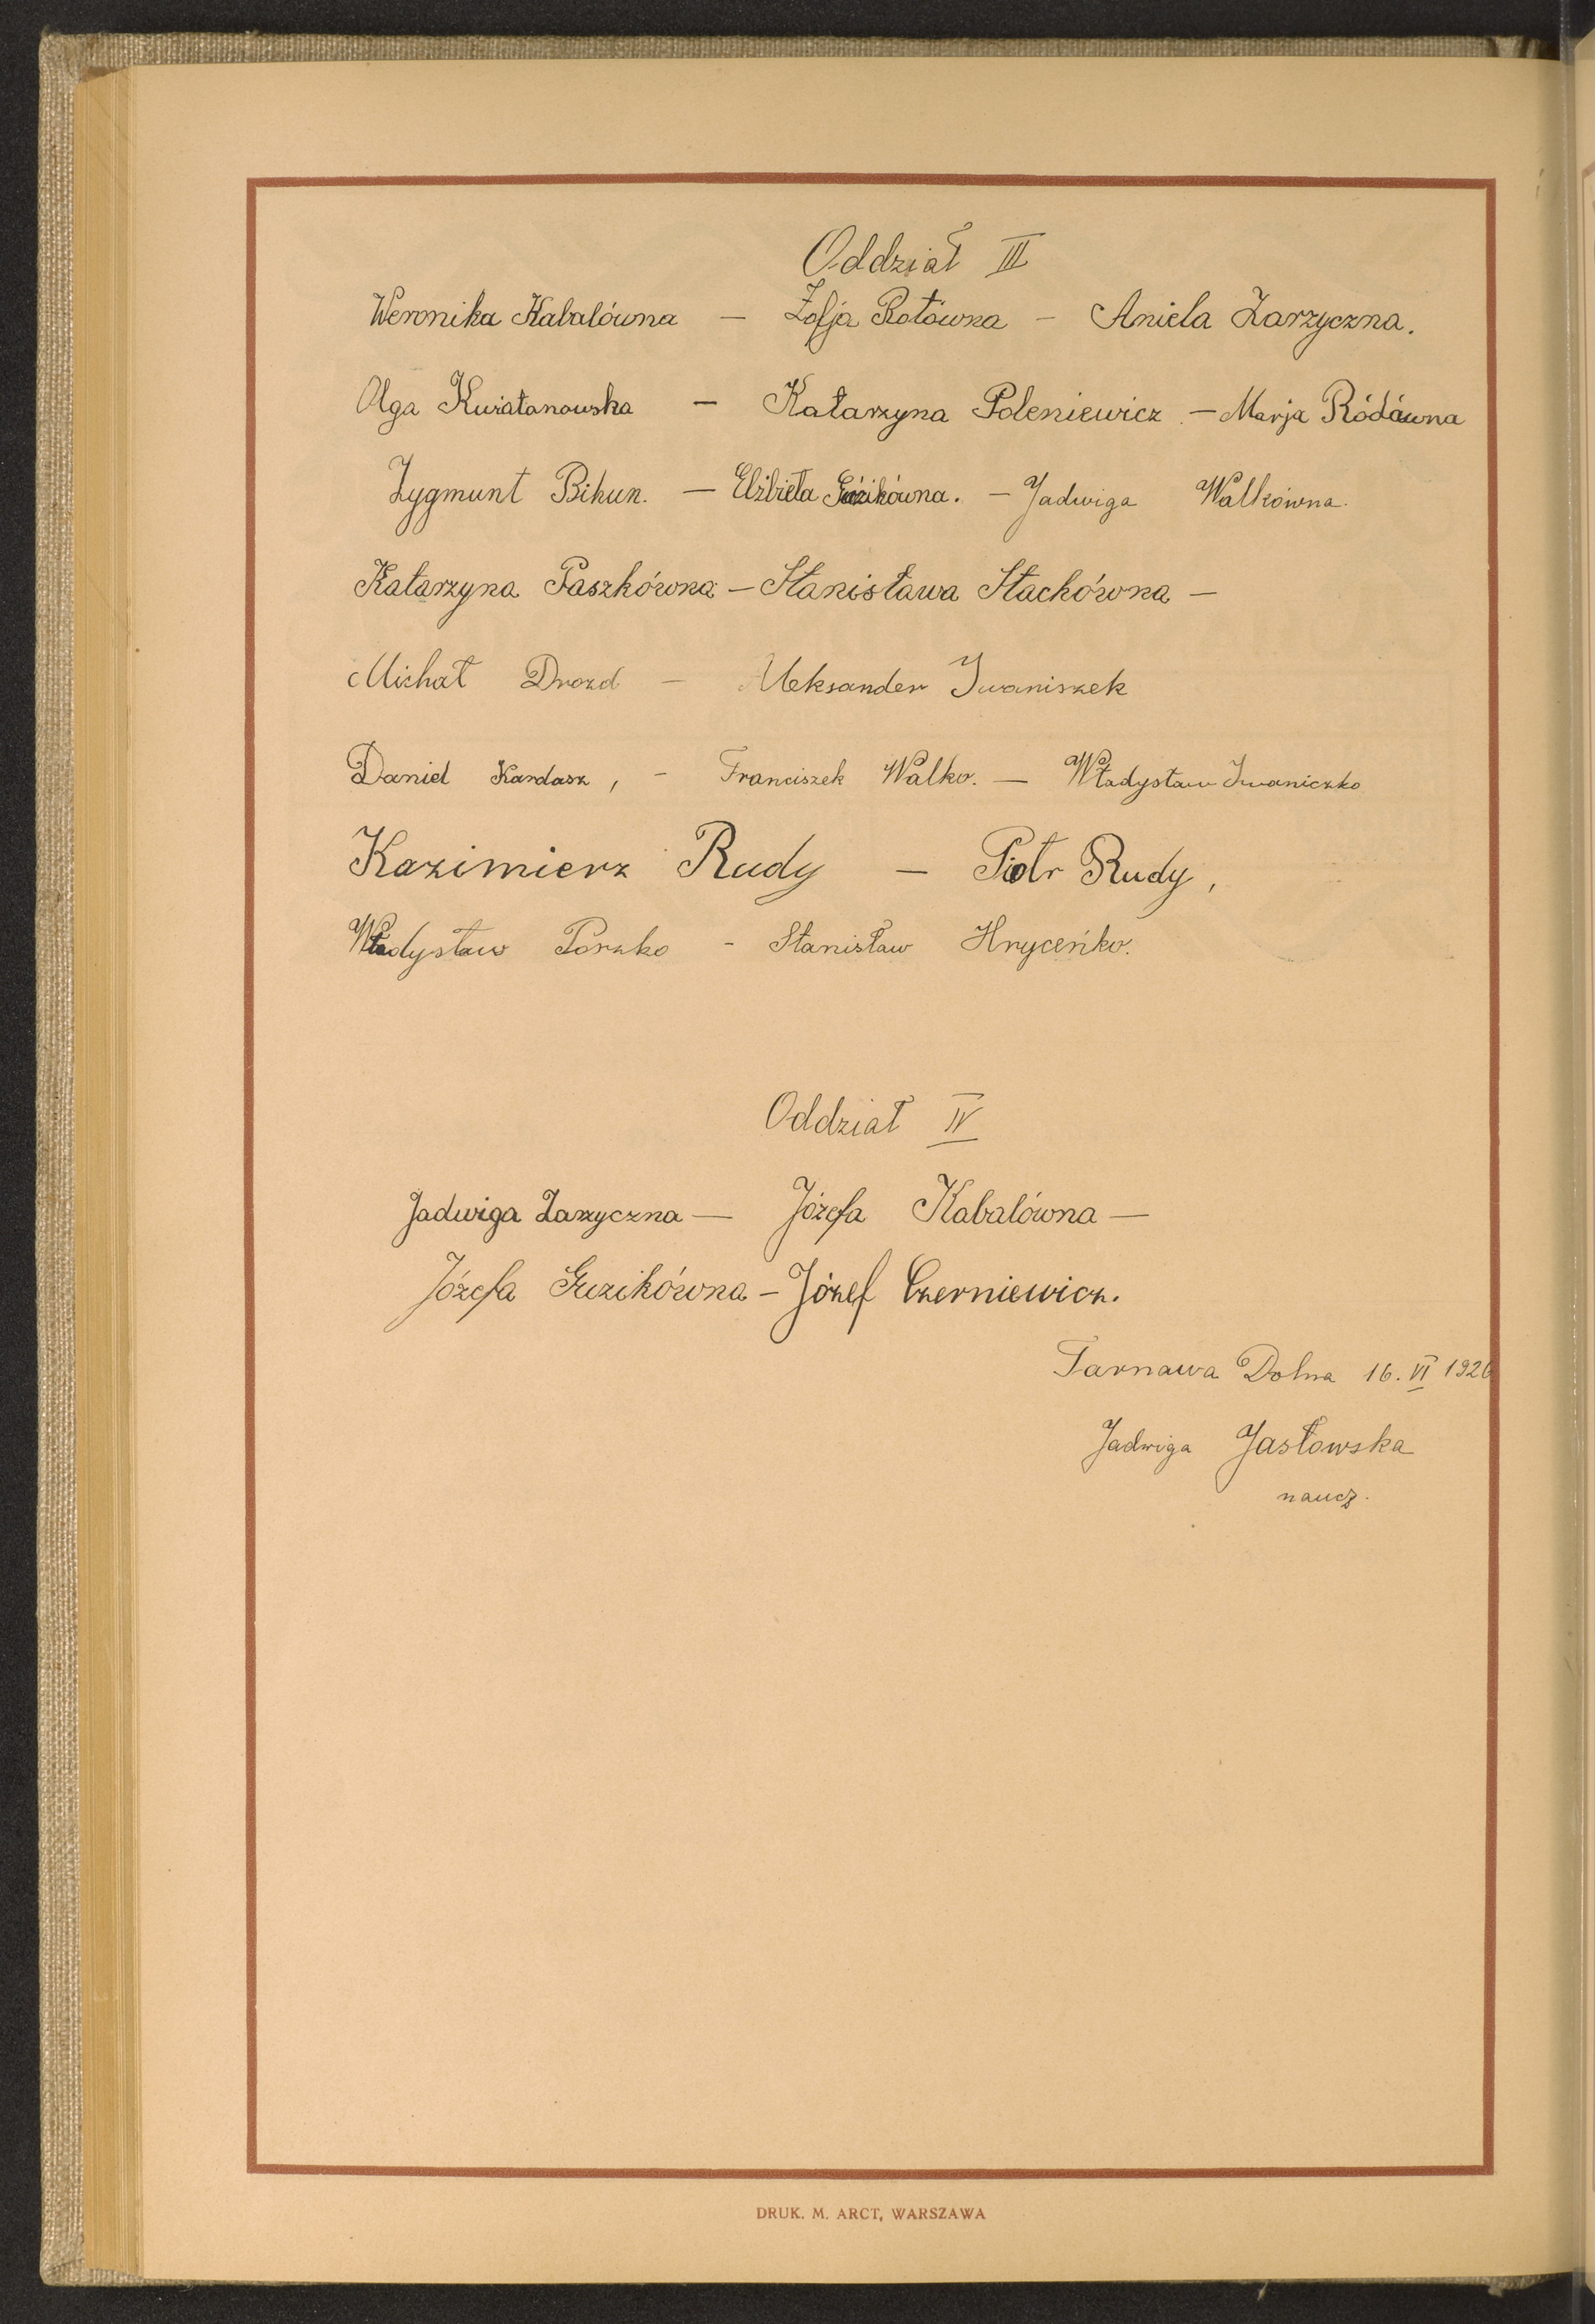 Oddział III
Weronika Kabalówna — Zofja Rotówna — Aniela Zarzyczna.
Olga Kwiatanowska — Katarzyna Poleniewicz — Marja Ródówna
Zygmunt Bihun. — Elżbieta Guzikówna. — Jadwiga Walkówna.
Katarzyna Paszkówna — Stanisława Stachówna —
Michał Drozd — Aleksander Iwaniszek
Daniel Kardasz, — Franciszek Walko. — Władysław Iwaniczko
Kazimierz Rudy — Piotr Rudy,
Władysław Porzko - Stanisław Hryceńko.
Oddział IV
Jadwiga Zarzyczna — Józefa Kabalówna —
Józefa Guzikówna — Józef Czerniewicz.
Tarnawa Dolna 16. VI 1926
Jadwiga Jasłowska
naucz.
DRUK. M. ARCT, WARSZAWA